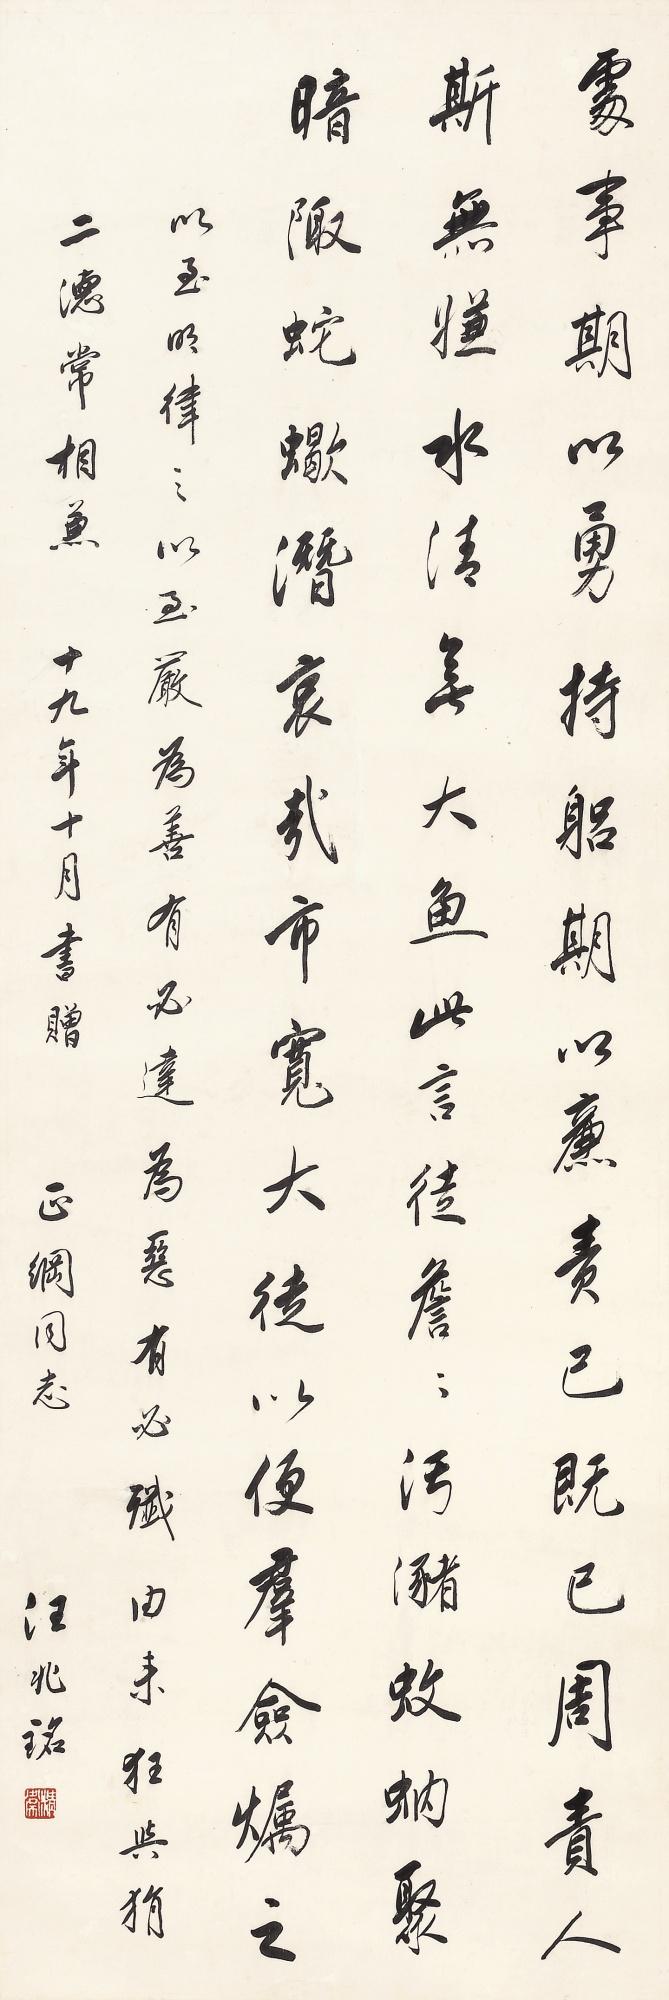 處事期以勇持躬期以廉責己既已周責人
斯無嫌水清無大魚此言徒詹〻汚瀦蚊蚋聚
暗陬蛇蠍潛哀哉市寬大徒以便羣僉爥之
以至明律之以至嚴為善有必達為惡有必殲由来狂與狷
二德常相兼 十九年十月書贈 正綱同志 汪兆銘